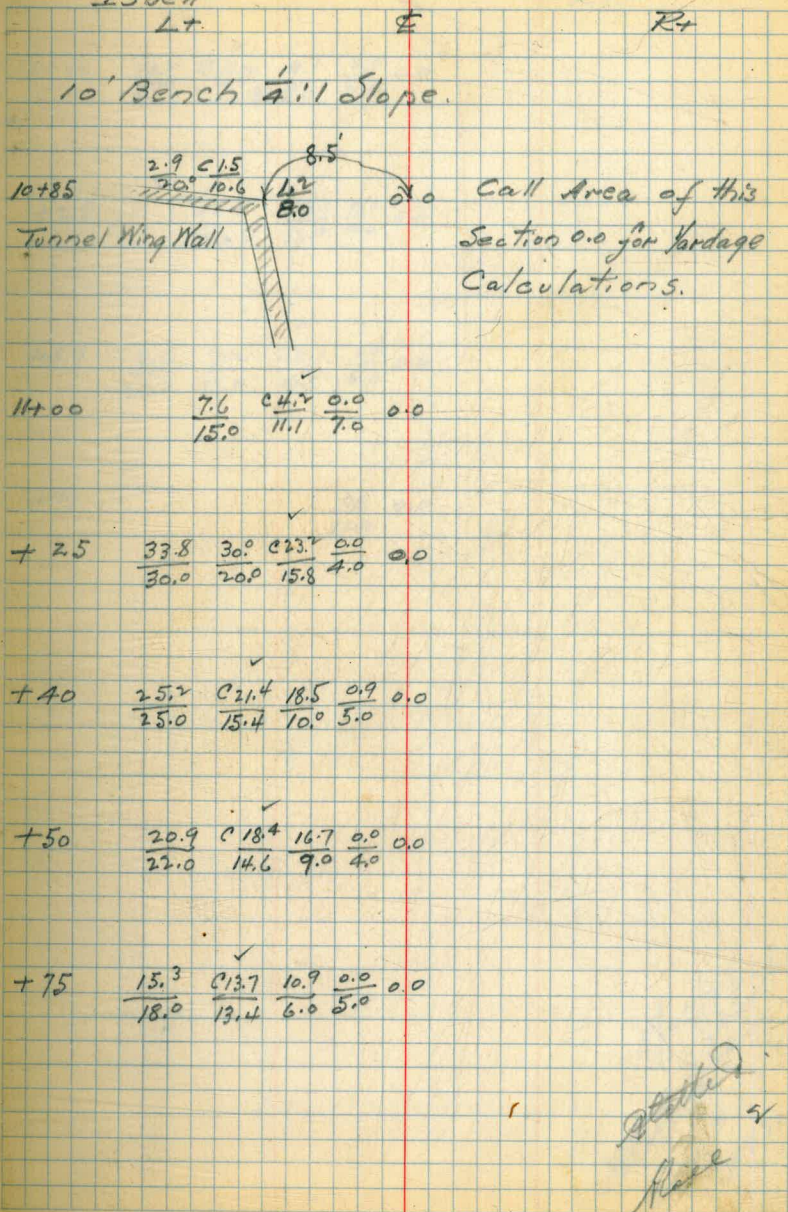 Lt. ℄ Rt
10' Bench 1/4:1 Slope.
8.5'
10+85 2.9/20.0 C1.5/10.6 1.2/8.0 0.0 Call Area of this
Tunnel Wing Wall Section 0.0 for Yardage
Calculations.
✓
11+00 7.6/15.0 C4.2/11.1 0.0/7.0 0.0
✓
+25 33.8/30.0 30.0/20.0 C23.2/15.8 0.0/4.0 0.0
✓
+40 25.2/25.0 C21.4/15.4 18.5/10.0 0.9/5.0 0.0
✓
+50 20.9/22.0 C18.4/14.6 16.7/9.0 0.0/4.0 0.0
✓
+75 15.3/18.0 C13.7/13.4 10.9/6.0 0.0/5.0 0.0